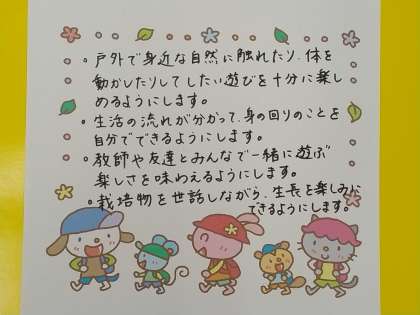 ・戸外で身近な自然に触れたり、体を
動かしたりしてしたい遊びを十分に楽し
めるようにします。
・生活の流れが分かって、身の回りのことを
自分でできるようにします。
・教師や友達とみんなで一緒に遊ぶ
楽しさを味わえるようにします。
・栽培物を世話しながら、生長を楽しみに
できるようにします。